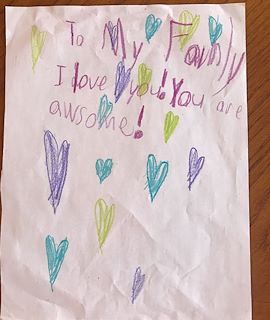 To My Family
I love you! You are
awsome!